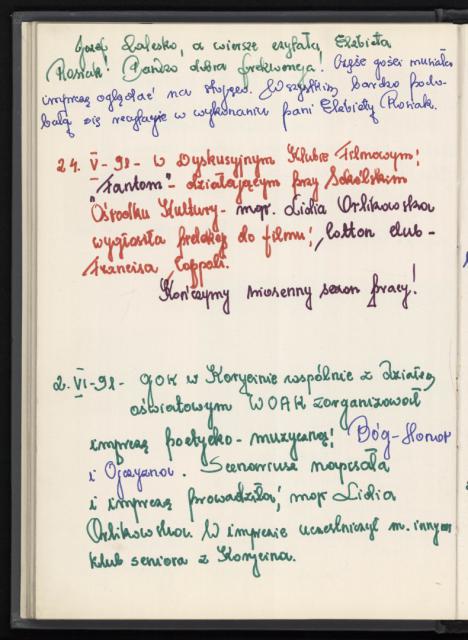 Józef Zalesko, a wiersze czytała Elżbieta
Rosiak! Bardzo dobra frekwencja! Część gości musiała
imprezę oglądać na stojąco. Wszystkim bardzo podo-
bały się recytacje w wykonaniu pani Elżbiety Rosiak.
24. V-91- w Dyskusyjnym Klubie Filmowym!
"Fantom"- działającym przy Sokólskim
Ośrodku Kultury- mgr. Lidia Orlikowska
wygłosiła prelekcję do filmu! Cotton club-
Francisa Coppoli.
Kończymy wiosenny sezon pracy!
2. VI-91- GOK w Korycinie wspólnie z działem
oświatowym WOAK zorganizował
imprezę poetycko- muzyczną! Bóg-Honor
i Ojczyzna. Scenariusz napisała
i imprezę prowadziła; mgr Lidia
Orlikowska. W imprezie uczestniczył m. innym
klub seniora z Korycina.